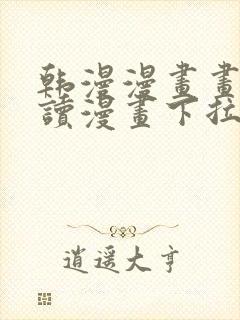 韩漫漫畫畫
讀漫畫下拉
逍遥大亨